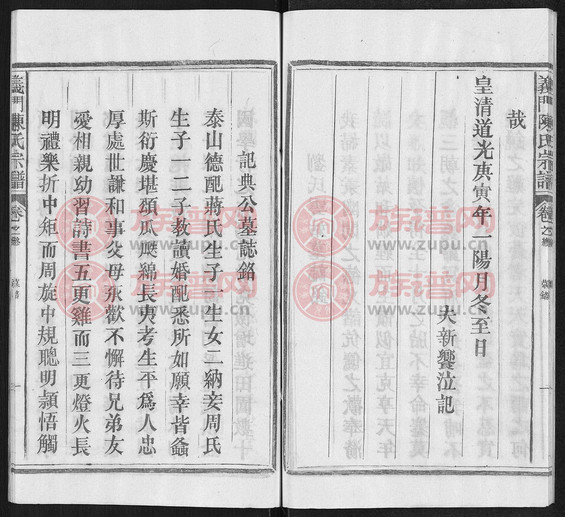 義門陳氏宗譜
卷之
哉
皇清道光庚寅年一陽月冬至日
夫新饗泣記
記典公墓誌銘
泰山德配蔣氏生子一生女二納妾周氏
生子一二子教讀婚配悉所如願幸皆螽
斯衍慶堪頌瓜瓞綿長夷考生平爲人忠
厚處世謙和事父母承歡不懈待兄弟友
愛相親幼習詩書五更雞而三更燈火長
明禮樂折中矩而周旋中規聰明頴悟觸
義門陳氏宗譜
卷之
族谱网
www.zupu.cn
族谱网
www.zupu.cn
族谱网
www.zupu.cn
族谱网
www.zupu.cn